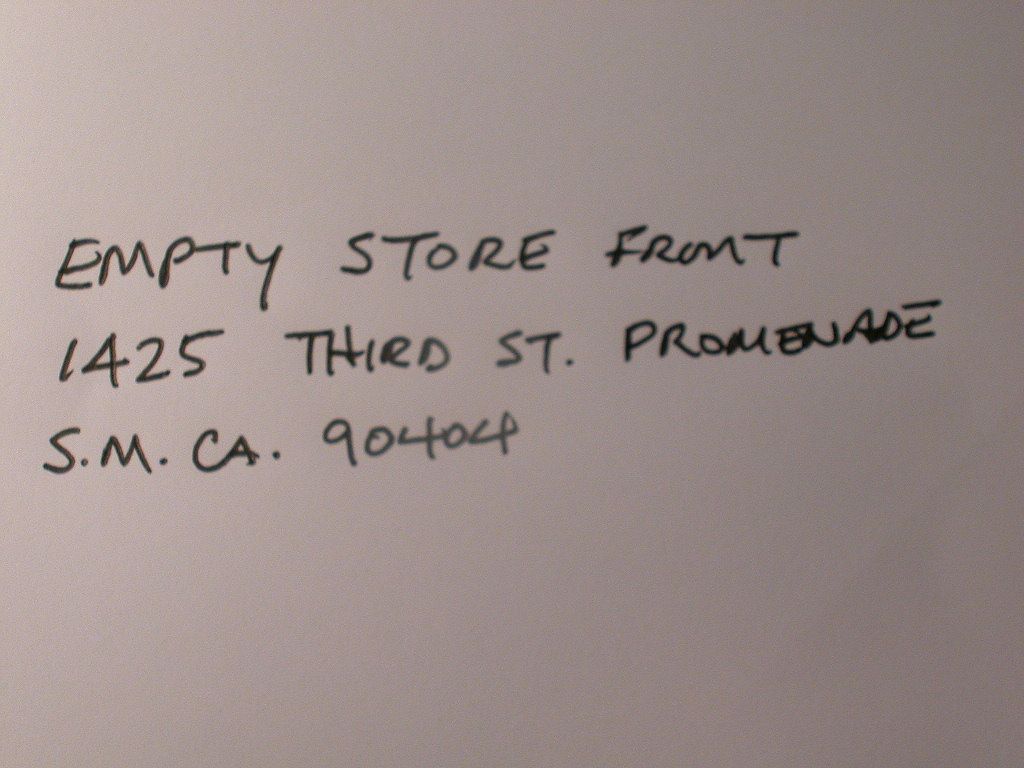 EMPTY STORE FRONT
1425 THIRD ST. PROMENADE
S.M. CA. 90404